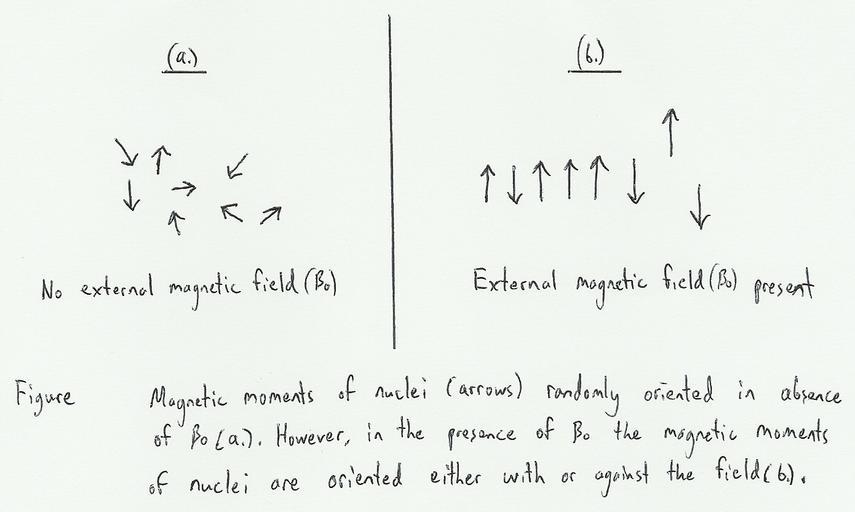 (a.)
(b.)
No external magnetic field (B₀)
External magnetic field (B₀) present
Figure
Magnetic moments of nuclei (arrows) randomly oriented in absence
of B₀ (a.). However, in the presence of B₀ the magnetic moments
of nuclei are oriented either with or against the field (b.).